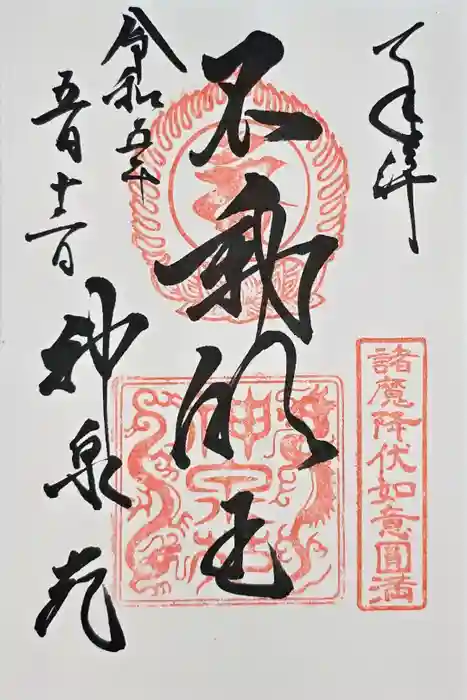 奉拝
諸魔降伏如意圓満
不動明王
神泉苑
令和五年
五月十二日
神泉苑